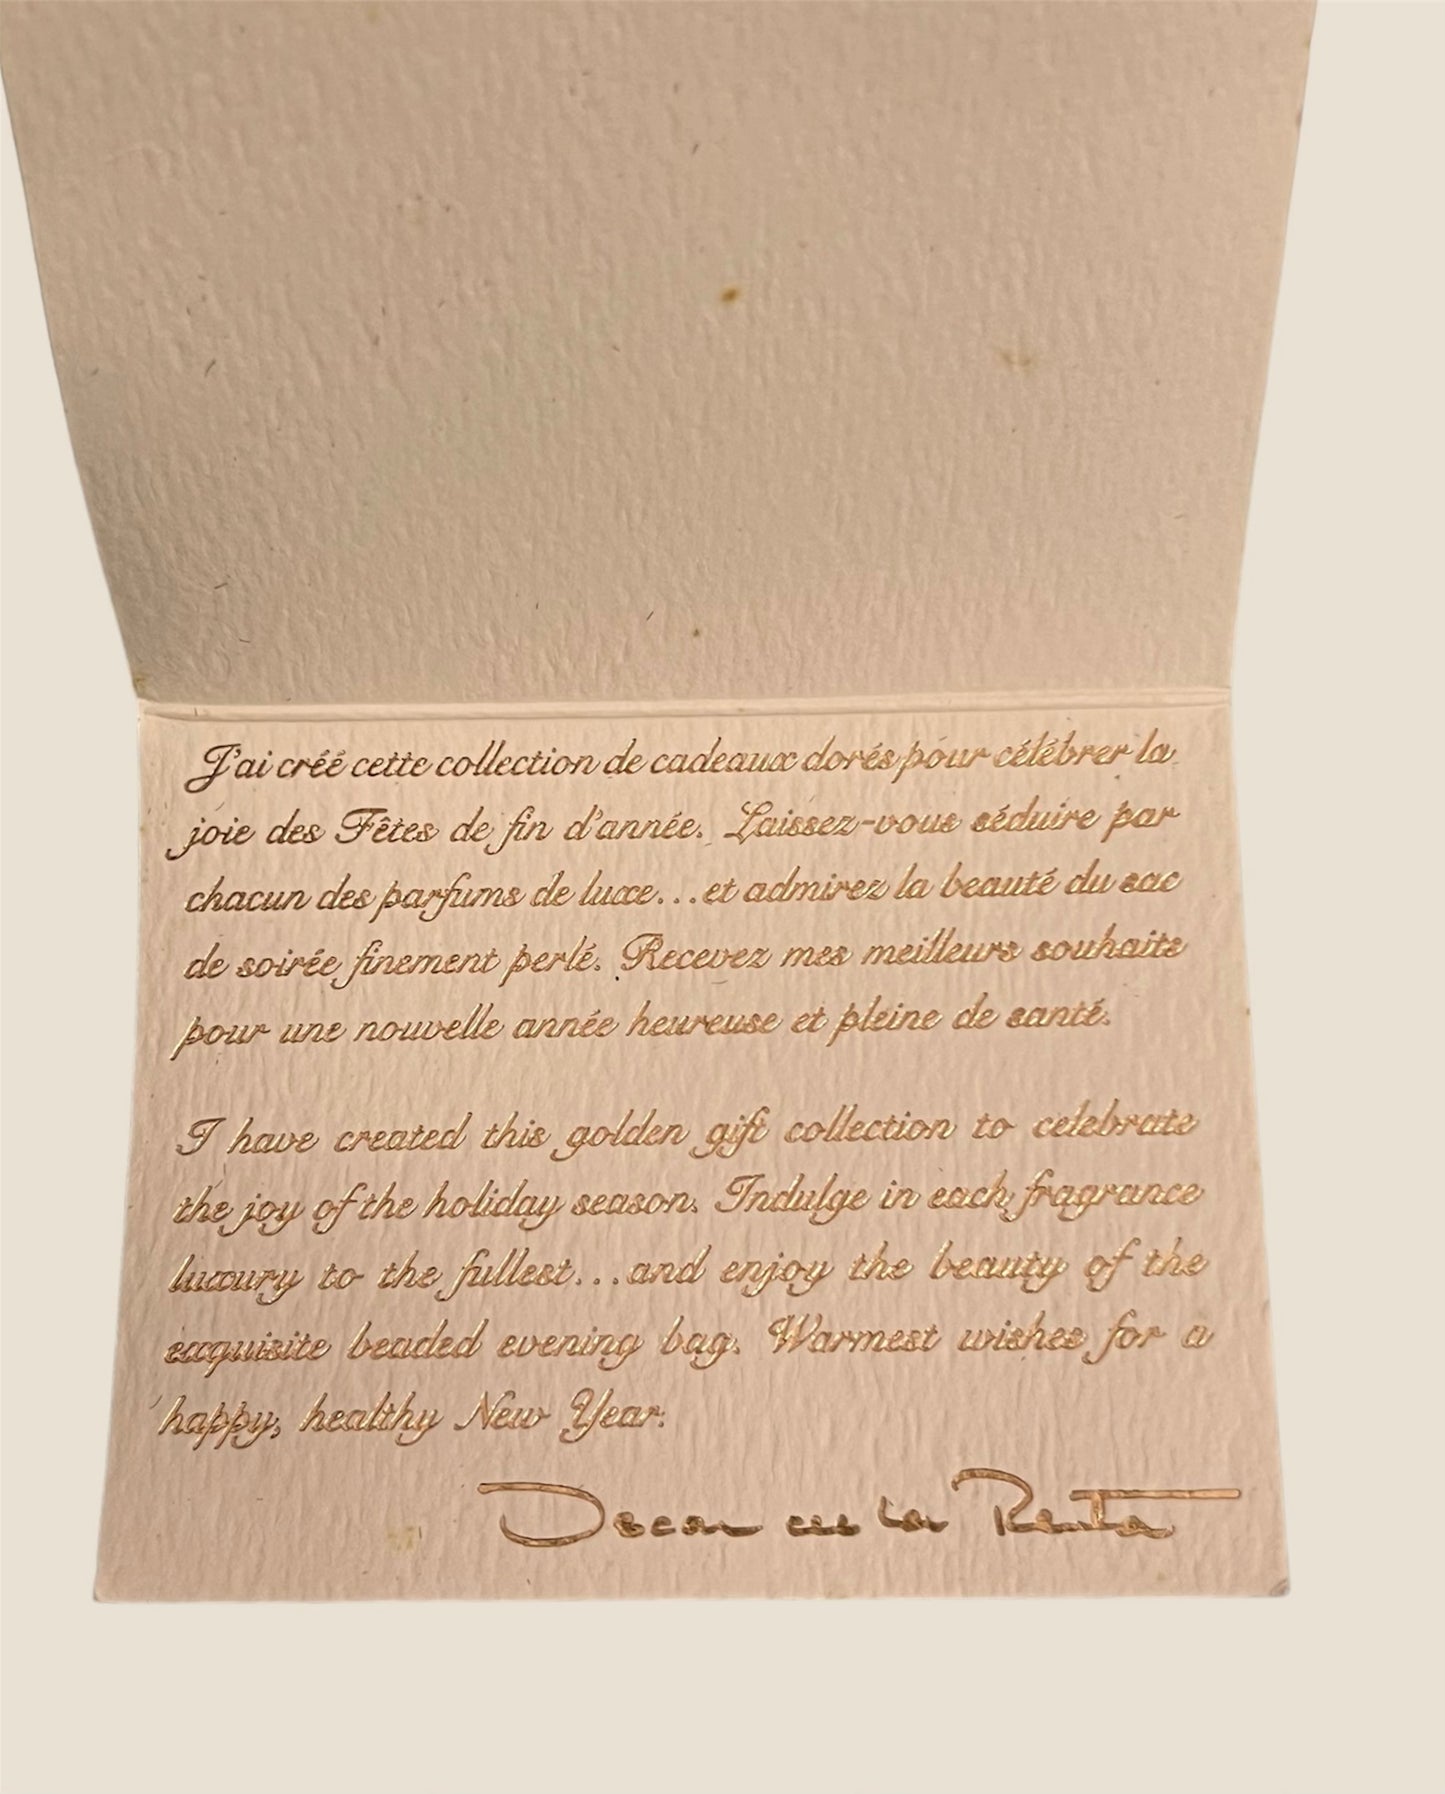 J'ai créé cette collection de cadeaux dorés pour célébrer la
joie des Fêtes de fin d'année. Laissez-vous séduire par
chacun des parfums de luxe...et admirez la beauté du sac
de soirée finement perlé. Recevez mes meilleurs souhaits
pour une nouvelle année heureuse et pleine de santé.
I have created this golden gift collection to celebrate
the joy of the holiday season. Indulge in each fragrance
luxury to the fullest...and enjoy the beauty of the
exquisite beaded evening bag. Warmest wishes for a
happy, healthy New Year.
Oscar de la Renta